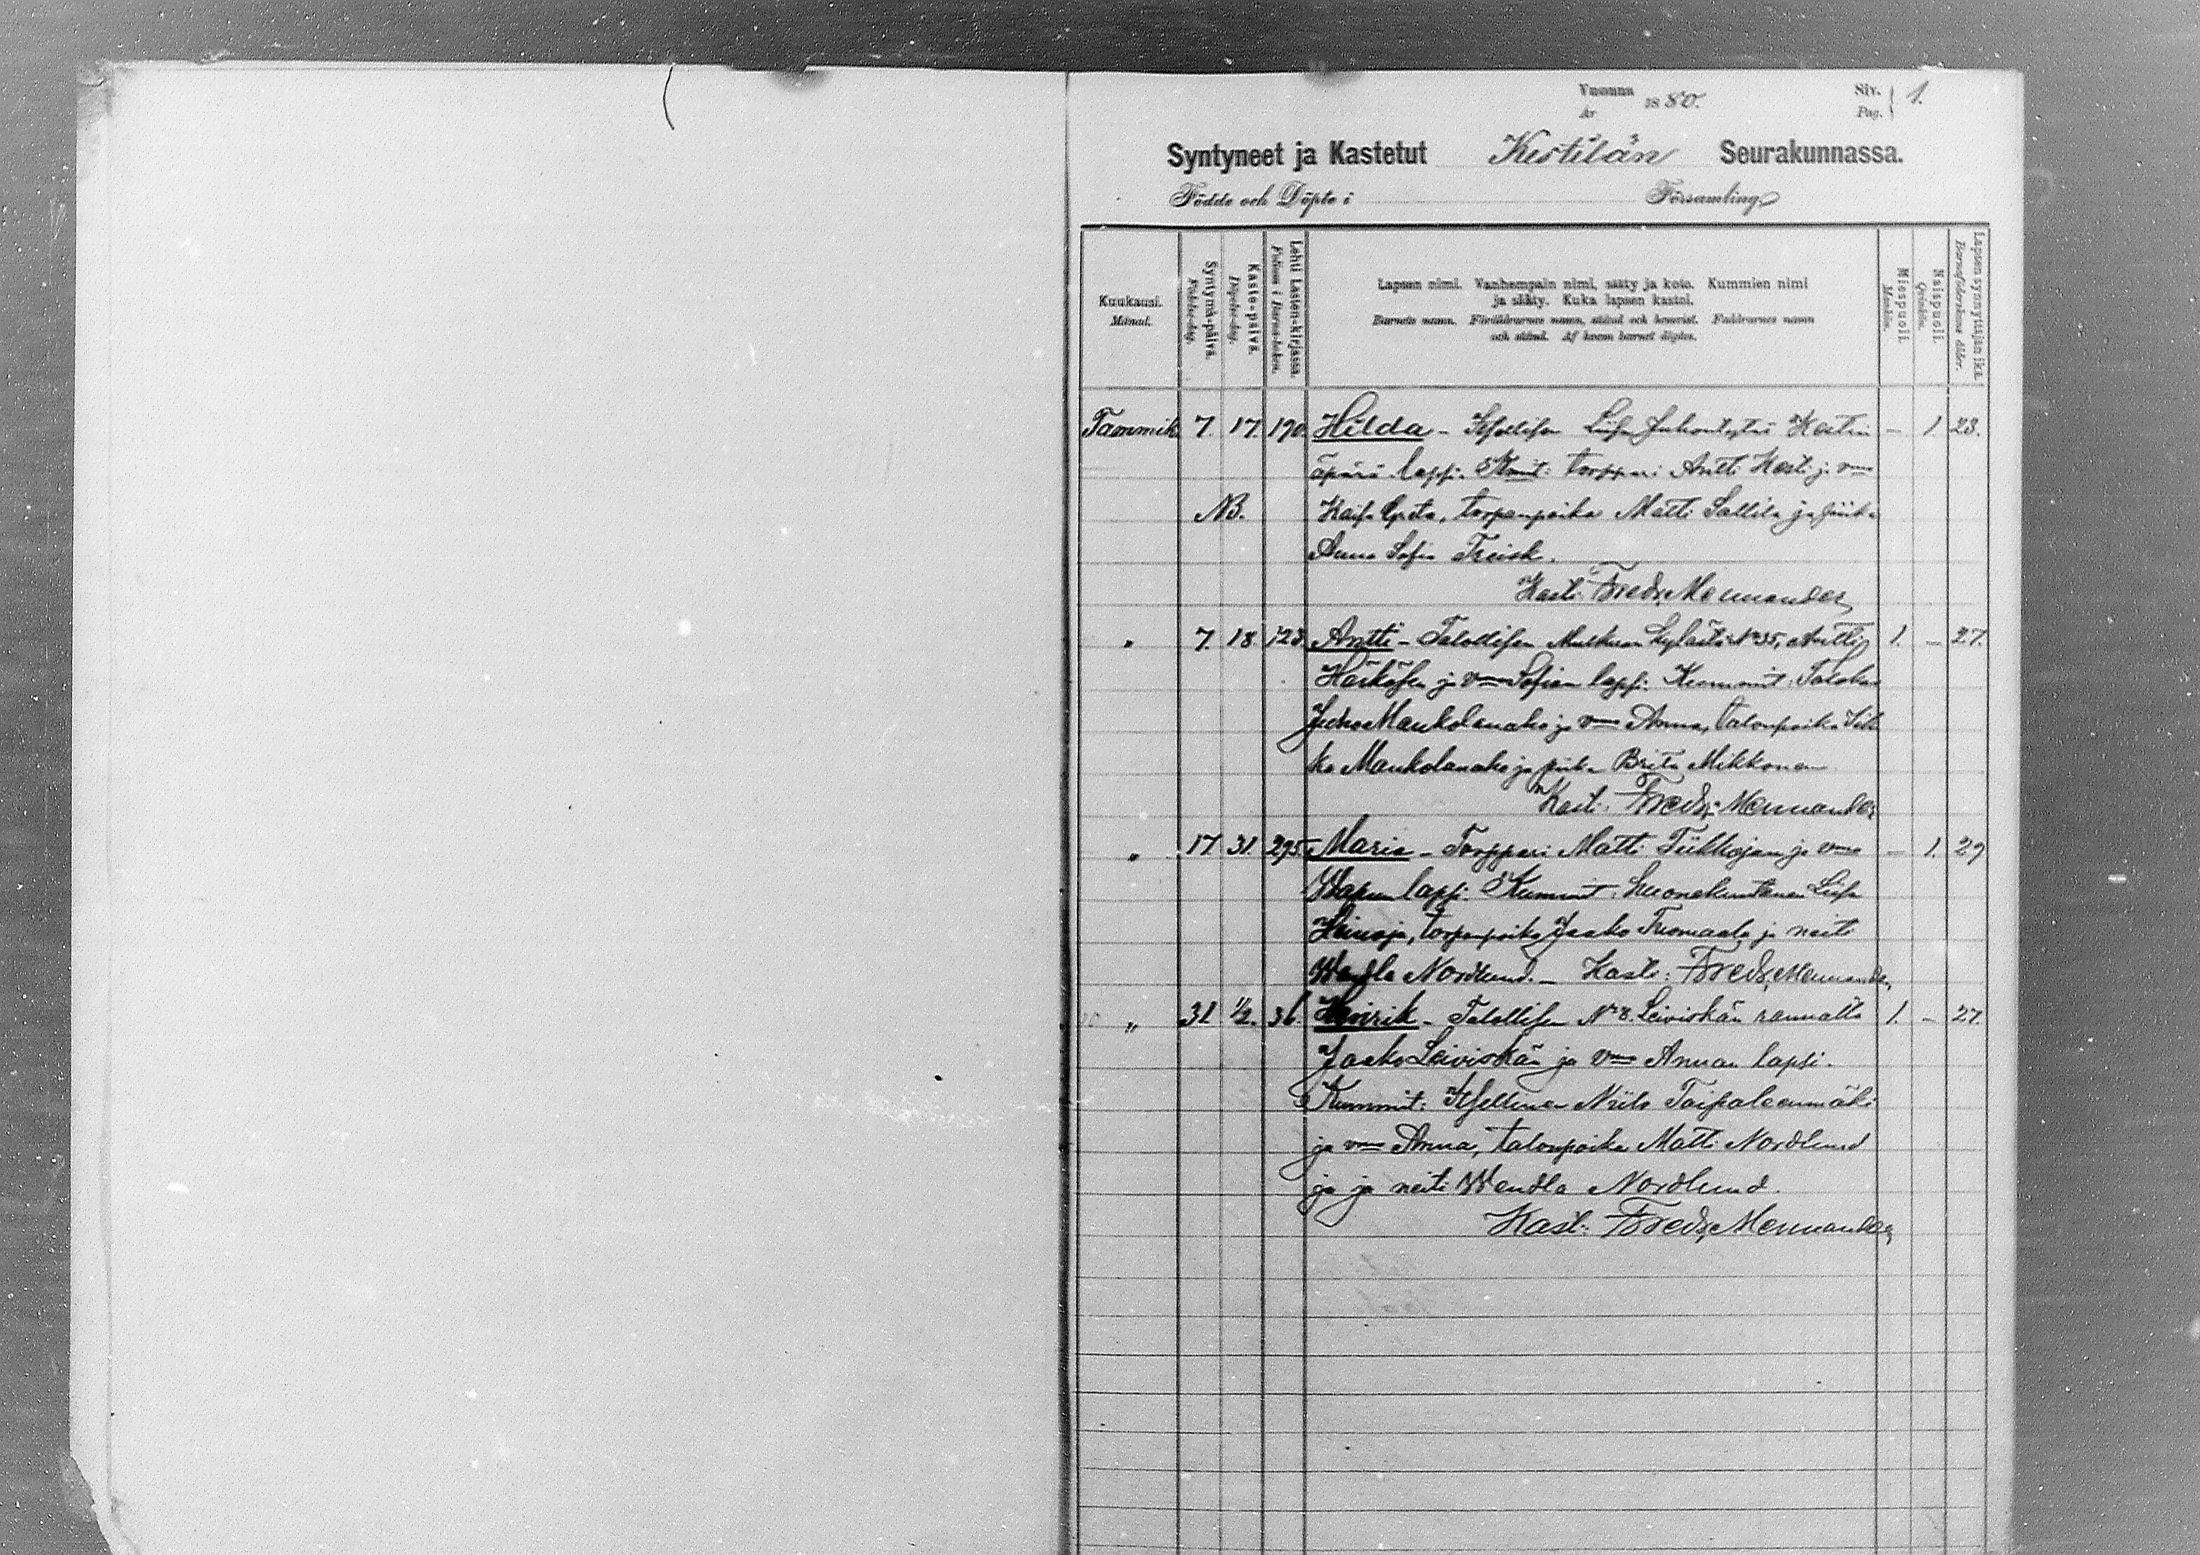 Vuonna 1880. Siv. 1.
År Pag.
Syntyneet ja Kastetut Kestilän Seurakunnassa.
Födde och Döpte i Församling
Kuukausi. Månad.
Syntymä-päivä. Födelse-dag.
Kaste-päivä. Döpelse-dag.
Lehti Lasten-kirjassa. Folium i Barna-boken.
Lapsen nimi. Vanhempain nimi, sääty ja koto. Kummien nimi
ja sääty. Kuka lapsen kastoi.
Barnets namn. Föräldrarnes namn, stånd och hemvist. Faddrarnes namn
och stånd. Af hvem barnet döptes.
Miespuoli. Mankön.
Naispuoli. Qvinkön.
Lapsen synnyttäjän ikä. Barnaföderskans ålder.
Tammik. 7. 17. 190. Hilda - Itsellisen Liisa Juhontytär Kestin - 1. 23.
äpärä lapsi. Kumit: torppari Antti Kesti ja vmo
NB. Kaisa Greta, torpanpoika Matti Sallila ja piika
Anna Sofia Treisk.
Kasti: Fredr. Mennander
" 7. 18. 123. Antti - Talollisen Mulkuan kylästä No 35, Antti 1. - 27.
Härkösen ja vmo Sofian lapsi. Kummit: Talokas
Juho Mankolanaho ja vmo Anna, talonpoika
Mankolanaho ja piika Brita Mikkonen
Kast: Fredr. Mennander
" 17 31. 295. Maria - Torppari Matti Tiikkajan ja vmo - 1. 29
Wapun lapsi. Kummit: huonekuntanen Liisa
Heinoja, torpanpoika Jaako Tuomaala ja neiti
Wendla Nordlund. - Kasti: Fredr. Mennander
" 31 1/2. 36. Henrik - Talollisen No 8. Leiviskän rannalta 1. - 27.
Jaako Leiviskän ja vmo Annan lapsi.
Kummit: Itsellinen Niilo Taipaleenmäki
ja vmo Anna, talonpoika Matti Nordlund
ja ja neiti Wendla Nordlund.
Kast: Fredr. Mennander